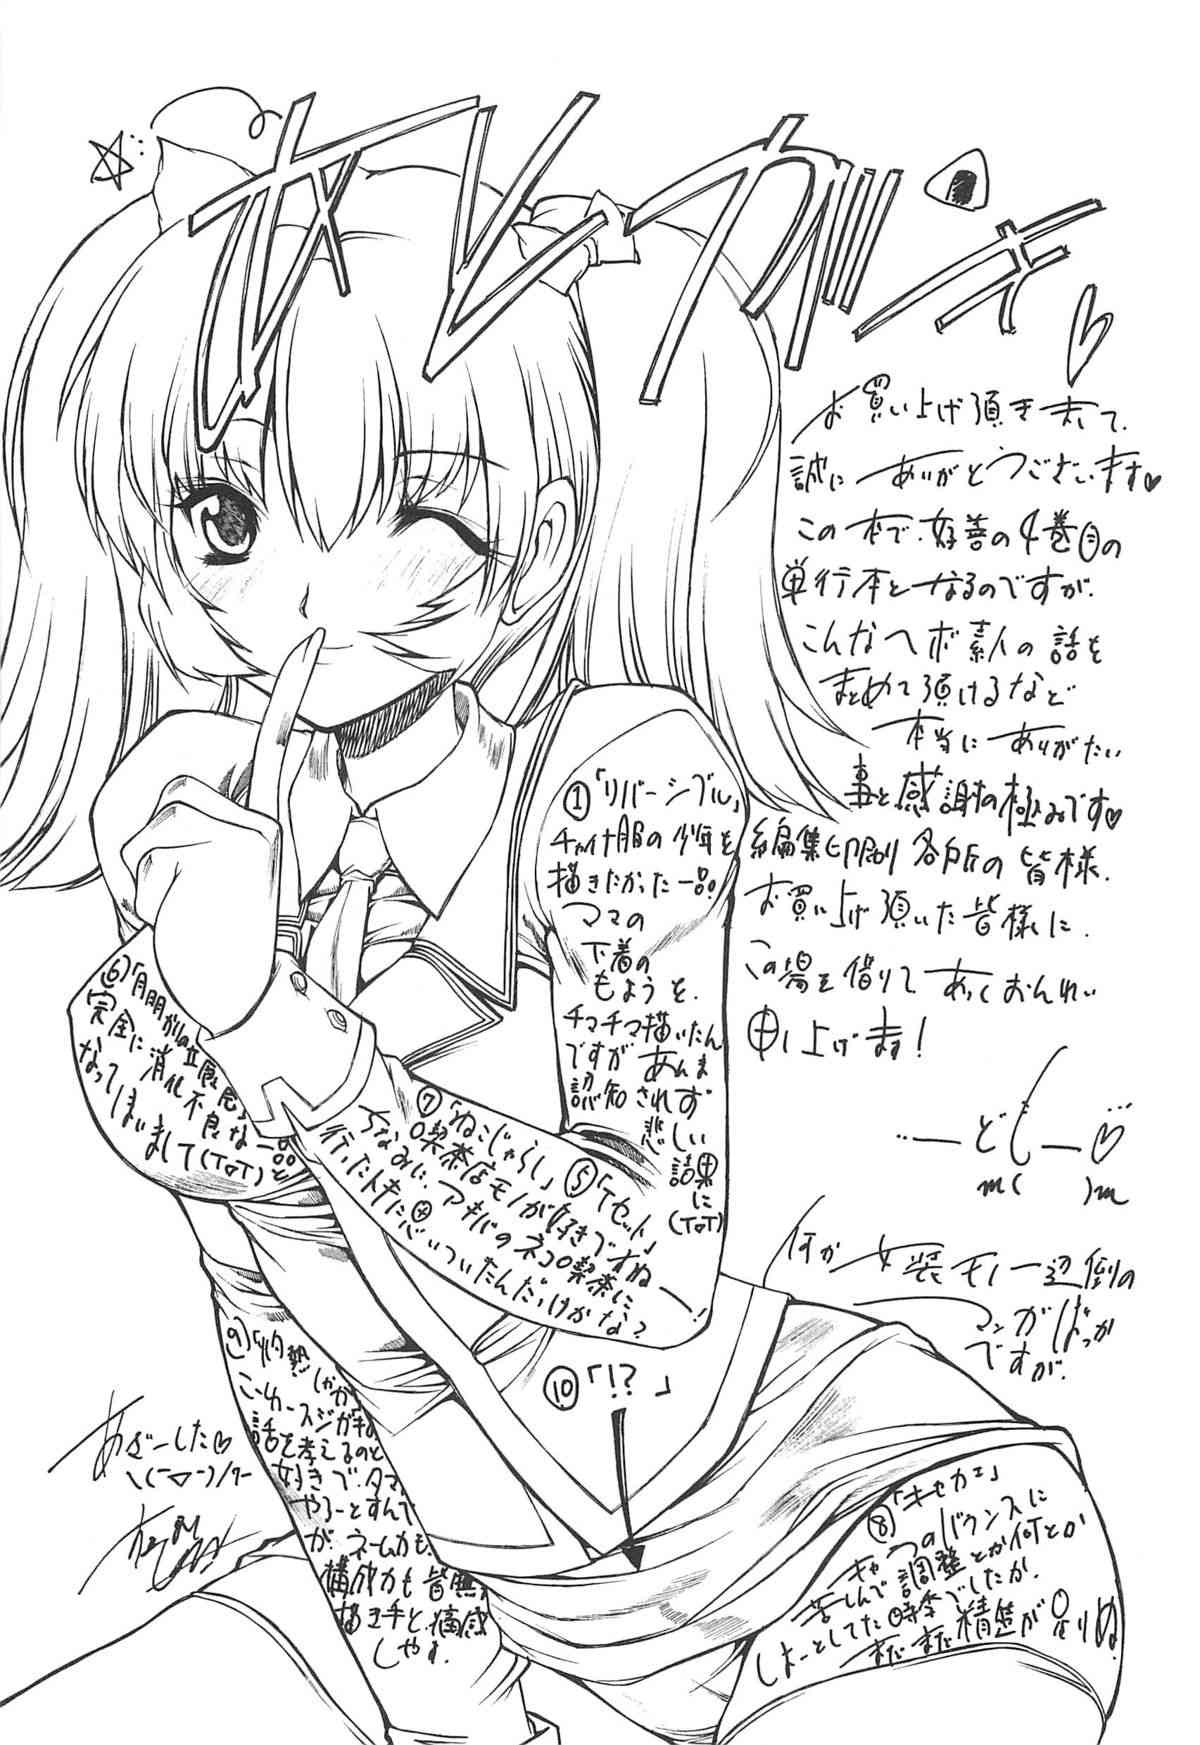 オレガッ・キ♡
お買い上げ頂きまして、
誠にありがとうございます♡
この本で、好善の4巻目の
単行本となるのですが、
こんなヘボ素人の話を
まとめて頂けるなど
本当にありがたい
事と感謝の極みです♡
編集印刷り各所の皆様、
お買い上げ頂いた皆様に、
この場を借りてあつくおんれい
申し上げます!
…ーどもー♡
m( )m
何か女装モノ一辺倒の
マンガばっか
ですが、
①「リバーシブル」
チャイナ服の少年を
描きたかった一品。
ママの
下着の
もようを、
チマチマ描いたん
ですがあんま
認知されず
悲しい結果に
(T▽T)
⑤「Tセット」
⑥「月明かりの
完全に消化不良な一品と
なってしまいまして(T▽T)
⑦「ねこじゃらし」
喫茶店モノが好きですねー!
ちなみに、アキバのネコ喫茶に
行ったトキに
思いついたんだっけかな?
⑧「キャカエ」
キャラのバウンスに
苦しんで調整とか何とか
しよーとしてた時季でしたか、
まだまだ精進が足りぬ。
⑨「灼熱
話を考えるのと
好きで、タマ
やろーとすんで
が、ネーム力も、
構成力も皆無
描き手と、痛感
しやす。
⑩「!?」
あざーした♡
\(ー▽ー)/